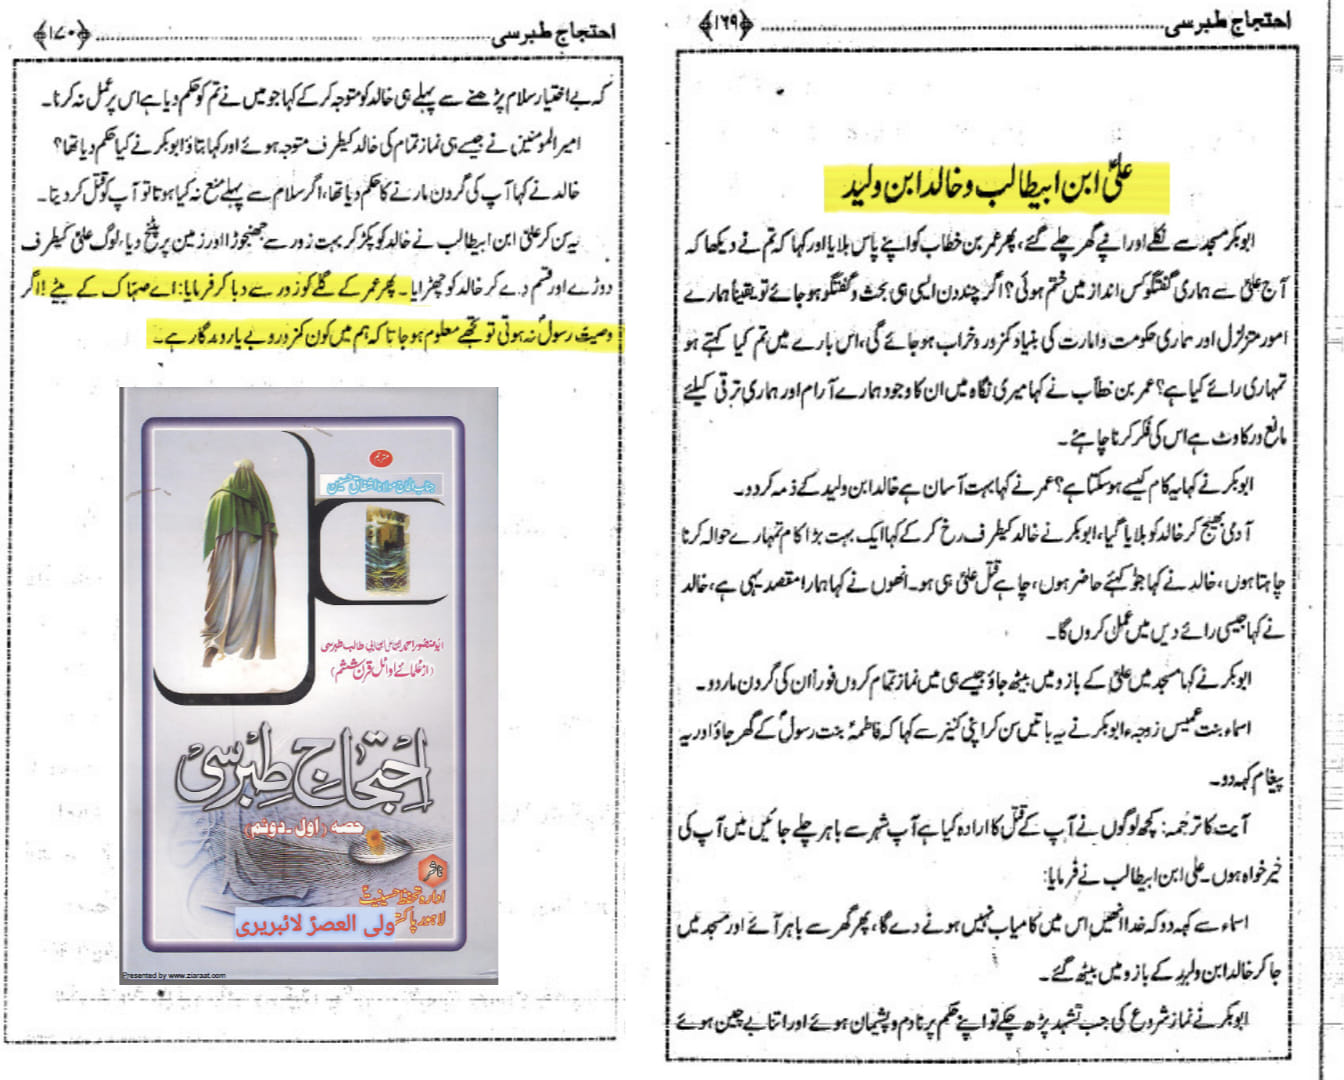 احتجاج طبرسی ............ ﴿۱۶۹﴾
علیؑ ابن ابیطالب و خالد ابن ولید
ابوبکر مسجد سے نکلے اور اپنے گھر چلے گئے، پھر عمر بن خطاب کو اپنے پاس بلایا اور کہا کہ تم نے دیکھا کہ
آج علیؑ سے ہماری گفتگو کس انداز میں ختم ہوئی؟ اگر چند دن ایسی ہی بحث و گفتگو ہو جائے تو یقیناً ہمارے
امور متزلزل اور ہماری حکومت و امارت کی بنیاد کمزور و خراب ہو جائے گی، اس بارے میں تم کیا کہتے ہو
تمہاری رائے کیا ہے؟ عمر بن خطاب نے کہا میری نگاہ میں ان کا وجود ہمارے آرام اور ہماری ترقی کیلئے
مانع و رکاوٹ ہے اس کی فکر کرنا چاہئے۔
ابوبکر نے کہا یہ کام کیسے ہو سکتا ہے؟ عمر نے کہا بہت آسان ہے خالد ابن ولید کے ذمہ کر دو۔
آدمی بھیج کر خالد کو بلایا گیا، ابوبکر نے خالد کیطرف رخ کر کے کہا ایک بہت بڑا کام تمہارے حوالہ کرنا
چاہتا ہوں، خالد نے کہا جو کہئے حاضر ہوں، چاہے قتل علیؑ ہی ہو۔ انھوں نے کہا ہمارا مقصد یہی ہے، خالد
نے کہا جیسی رائے دیں میں عمل کروں گا۔
ابوبکر نے کہا مسجد میں علیؑ کے بازو میں بیٹھ جاؤ جیسے ہی میں نماز تمام کروں فوراً ان کی گردن مار دو۔
اسماء بنت عمیس زوجہء ابوبکر نے یہ باتیں سن کر اپنی کنیز سے کہا کہ فاطمہؑ بنت رسولؐ کے گھر جاؤ اور یہ
پیغام کہہ دو۔
آیت کا ترجمہ: کچھ لوگوں نے آپ کے قتل کا ارادہ کیا ہے آپ شہر سے باہر چلے جائیں میں آپ کی
خیر خواہ ہوں۔ علی ابن ابیطالب نے فرمایا:
اسماء سے کہہ دو کہ خدا انھیں اس میں کامیاب نہیں ہونے دے گا، پھر گھر سے باہر آئے اور مسجد میں
جا کر خالد ابن ولید کے بازو میں بیٹھ گئے۔
ابوبکر نے نماز شروع کی جب تشہد پڑھ چکے تو اپنے حکم پر نادم و پشیمان ہوئے اور اتنا بے چین ہوئے
احتجاج طبرسی ............ ﴿۱۷۰﴾
کہ بے اختیار سلام پڑھنے سے پہلے ہی خالد کو متوجہ کر کے کہا جو میں نے تم کو حکم دیا ہے اس پر عمل نہ کرنا۔
امیر المومنینؑ نے جیسے ہی نماز تمام کی خالد کیطرف متوجہ ہوئے اور کہا بتاؤ ابوبکر نے کیا حکم دیا تھا؟
خالد نے کہا آپ کی گردن مارنے کا حکم دیا تھا، اگر سلام سے پہلے منع نہ کیا ہوتا تو آپ کو قتل کر دیتا۔
یہ سن کر علیؑ ابن ابیطالب نے خالد کو پکڑ کر بہت زور سے جھنجوڑا اور زمین پر پٹخ دیا، لوگ علیؑ کیطرف
دوڑے اور قسم دے کر خالد کو چھڑایا۔ پھر عمر کے گلے کو زور سے دبا کر فرمایا: اے صہاک کے بیٹے! اگر
وصیت رسولؐ نہ ہوتی تو تجھے معلوم ہو جاتا کہ ہم میں کون کمزور و بے یار و مددگار ہے۔
مترجم
جناب الحاج مولانا اشفاق حسین
ابو منصور احمد ابن علی ابن ابی طالب طبرسی
(از علمائے اوائل قرن ششم)
احتجاج طبرسی
حصہ (اول ۔ دوئم)
ناشر
ادارہ تحفظ حسینیت
لاہور پاکستان
ولی العصرؑ لائبریری
Presented by www.ziaraat.com